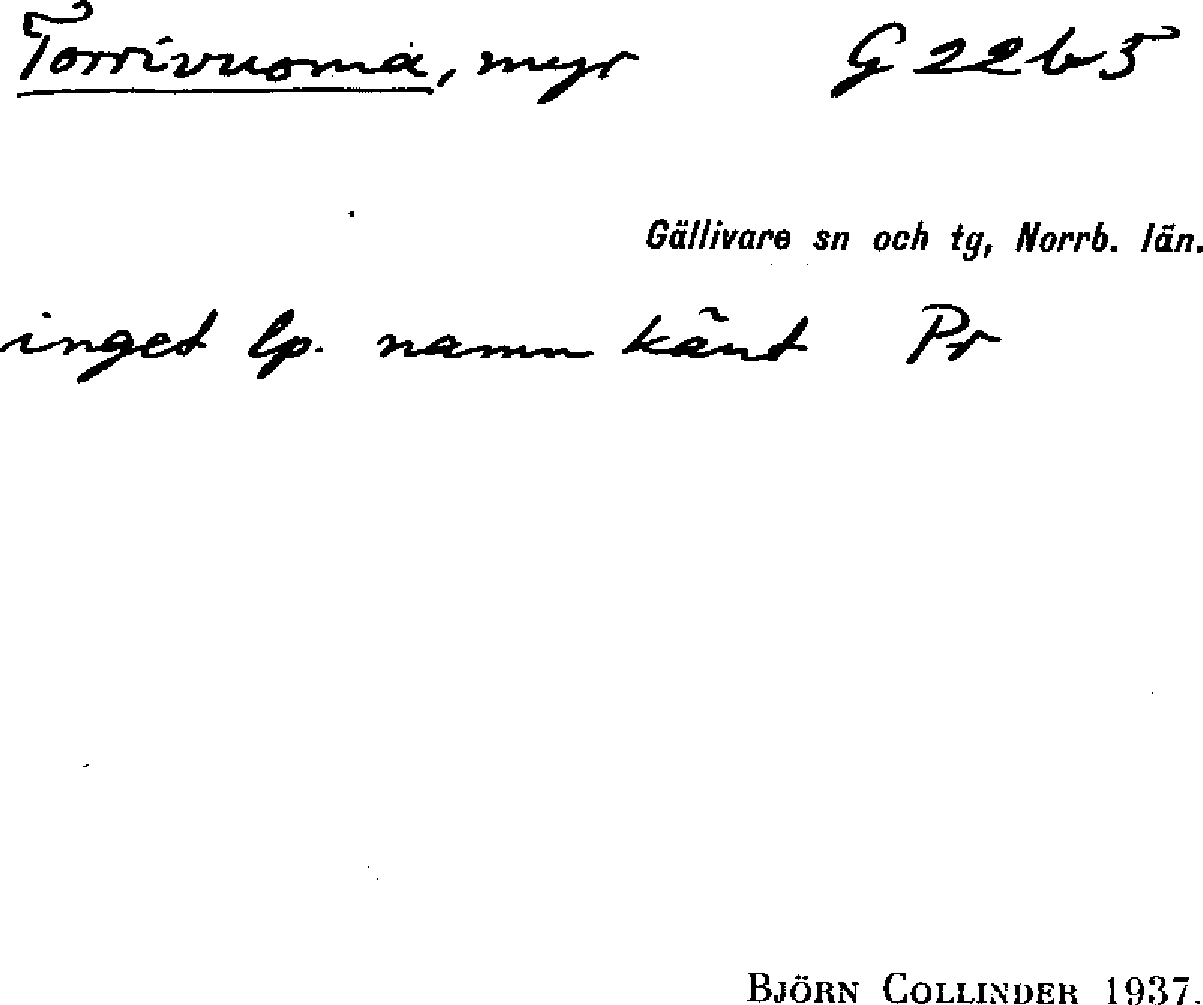 Torrivuoma, myr G 22 b 5
Gällivare sn och tg, Norrb. län.
inget lp. namn känt Pr
BJÖRN COLLINDER 1937.